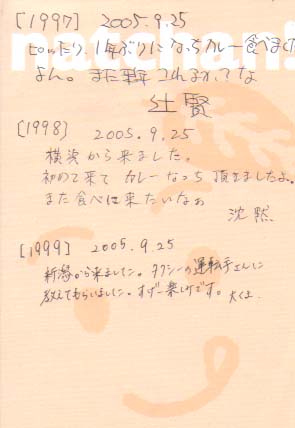 natchan!
[1997] 2005.9.25
ピッたり、1年ぶりになっちカレー食べまし
よん。また
辻賢
[1998] 2005.9.25
横浜から来ました。
初めて来て カレーなっち 頂きましたよ。
また食べに来たいなぁ
沈黙
[1999] 2005.9.25
新潟から来ました。タクシーの運転手さんに
教えてもらいました。すげー楽しみです。